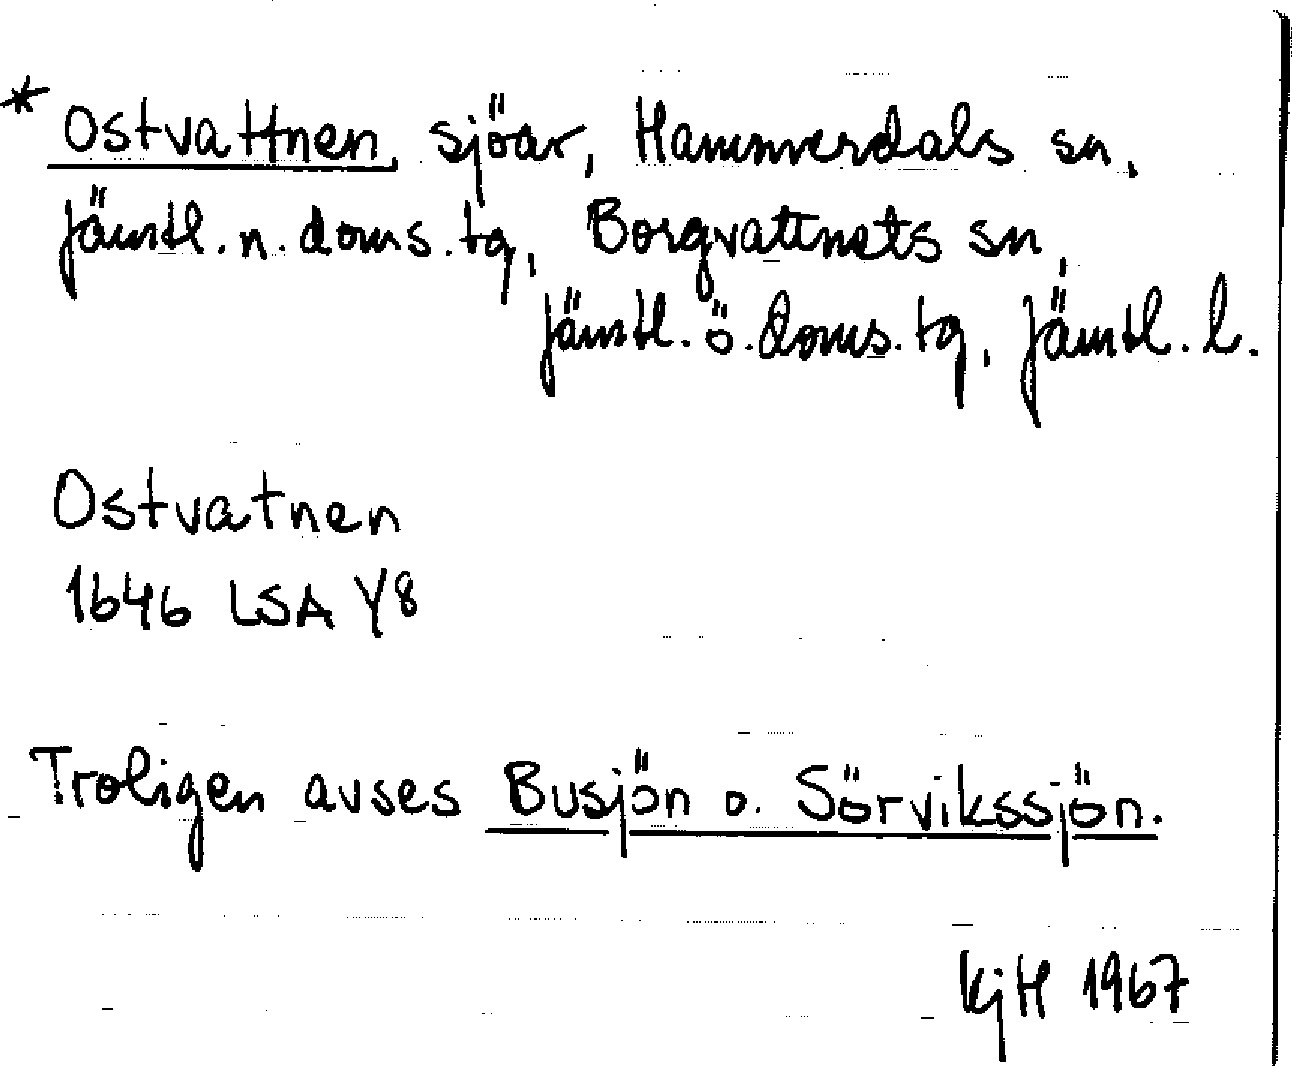 * Ostvattnen, sjöar, Hammerdals sn,
Jämtl. n. doms. tg, Borgvattnets sn,
Jämtl. ö. doms. tg, Jämtl. l.
Ostvatnen
1646 LSA Y8
Troligen avses Busjön o. Sörvikssjön.
KjH 1967